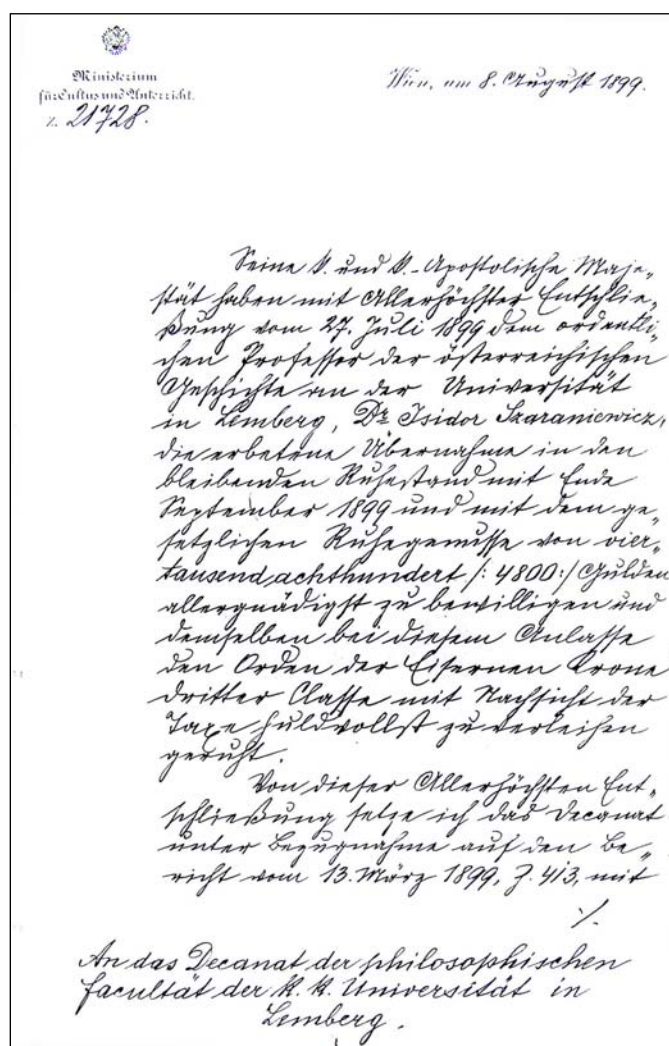 Ministerium
für Cultus und Unterricht.
Z. 21728.
Wien, am 8. August 1899.
Seine k. und k. Apostolische Maje-
stät haben mit Allerhöchster Entschlie-
ßung vom 27. Juli 1899 dem ordentli-
chen Professor der österreichischen
Geschichte an der Universität
in Lemberg, Dr. Isidor Szaraniewicz,
die erbetene Übernahme in den
bleibenden Ruhestand mit Ende
September 1899 und mit dem ge-
setzlichen Ruhegenusse von vier-
tausend achthundert /: 4800 :/ Gulden
allergnädigst zu bewilligen und
demselben bei diesem Anlasse
den Orden der Eisernen Krone
dritter Classe mit Nachsicht der
Taxe huldvollst zu verleihen
geruht.
Von dieser Allerhöchsten Ent-
schließung setze ich das Decanat
unter Bezugnahme auf den Be-
richt vom 13. März 1899, Z. 413, mit
./.
An das Decanat der philosophischen
Facultät der k. k. Universität in
Lemberg.